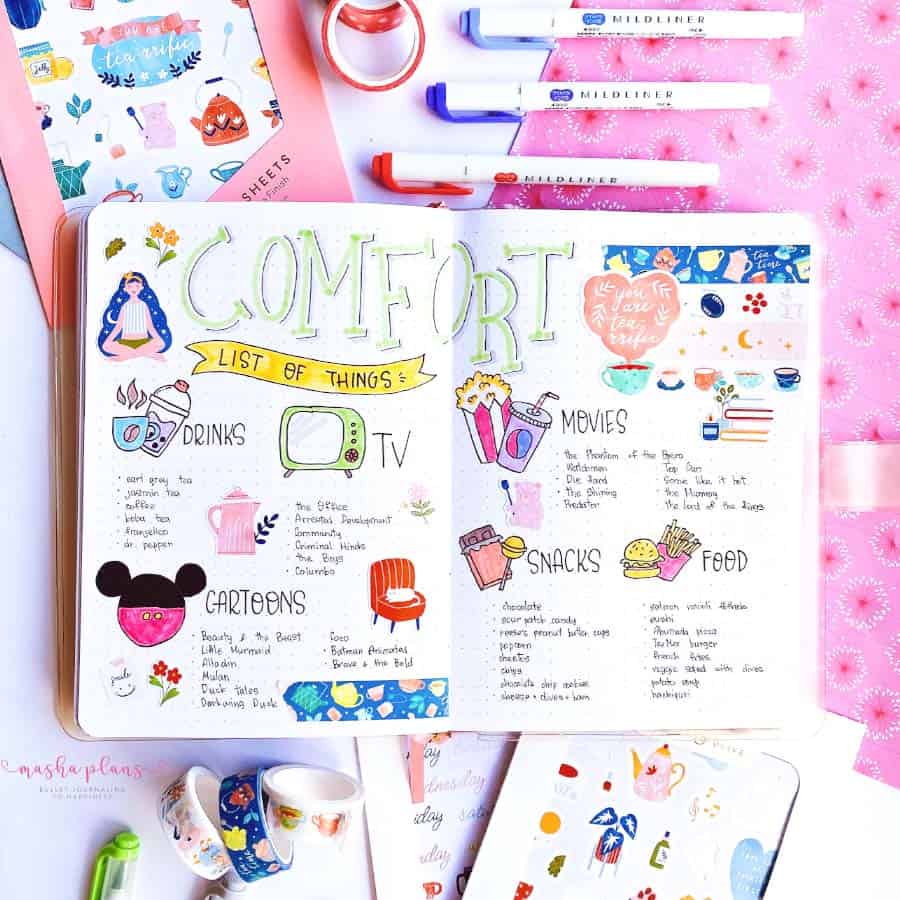 you are
tea-rrific
Jelly
SHEETS
Finish
MILDLINER
MILDLINER
MILDLINER
COMFORT
LIST OF THINGS
tea
time
you
are
tea-
rrific
DRINKS
• earl gray tea
• jasmin tea
• coffee
• boba tea
• frangelico
• dr. pepper
TV
• the Office
• Arrested Development
• Community
• Criminal Minds
• the Boys
• Columbo
CARTOONS
• Beauty & the Beast
• Little Mermaid
• Alladin
• Mulan
• Duck tales
• Darkwing Duck
• Coco
• Batman Animates
• Brave & the Bold
smile
MOVIES
• the Phantom of the Opera
• Watchmen
• Die Hard
• the Shining
• Predator
• Top Gun
• Some like it hot
• the Mummy
• the Lord of the Rings
SNACKS
• chocolate
• sour patch candy
• reese's peanut butter cups
• popcorn
• cheetos
• chips
• chocolate chip cookies
• cheese + olives + ham
FOOD
• salmon
• sushi
• pizza
• TexMex burger
• french fries
• veggie salad with olives
• potato soup
masha plans
BULLET JOURNALING
TO HAPPINESS